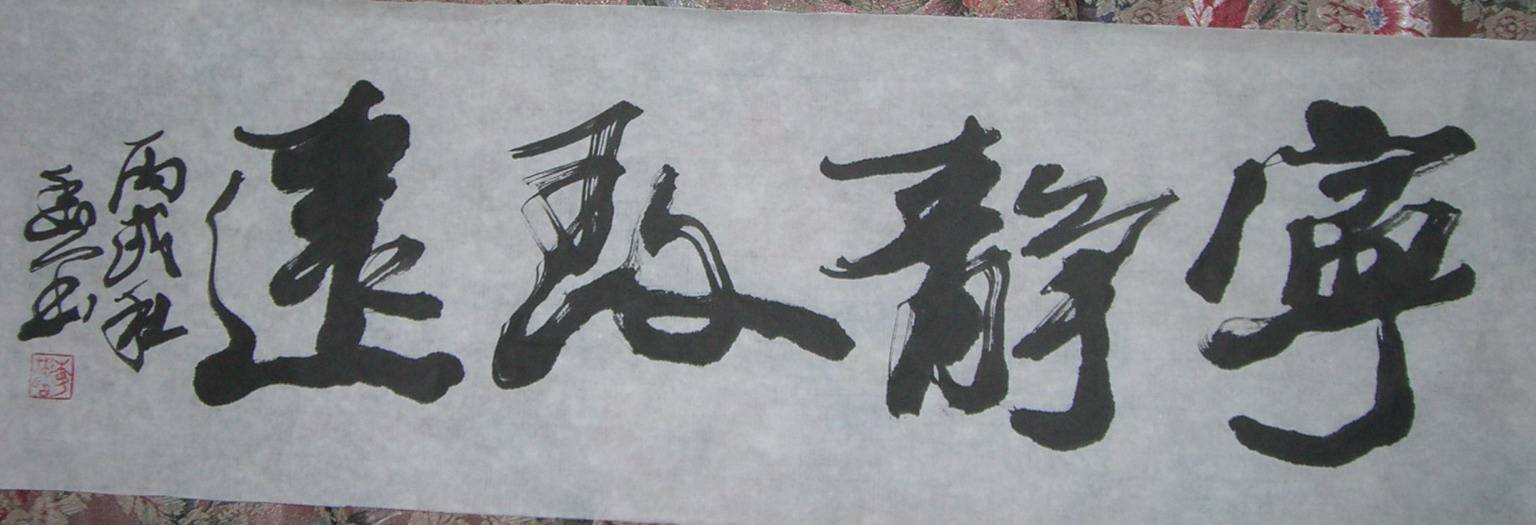 寧靜致遠
丙戌秋